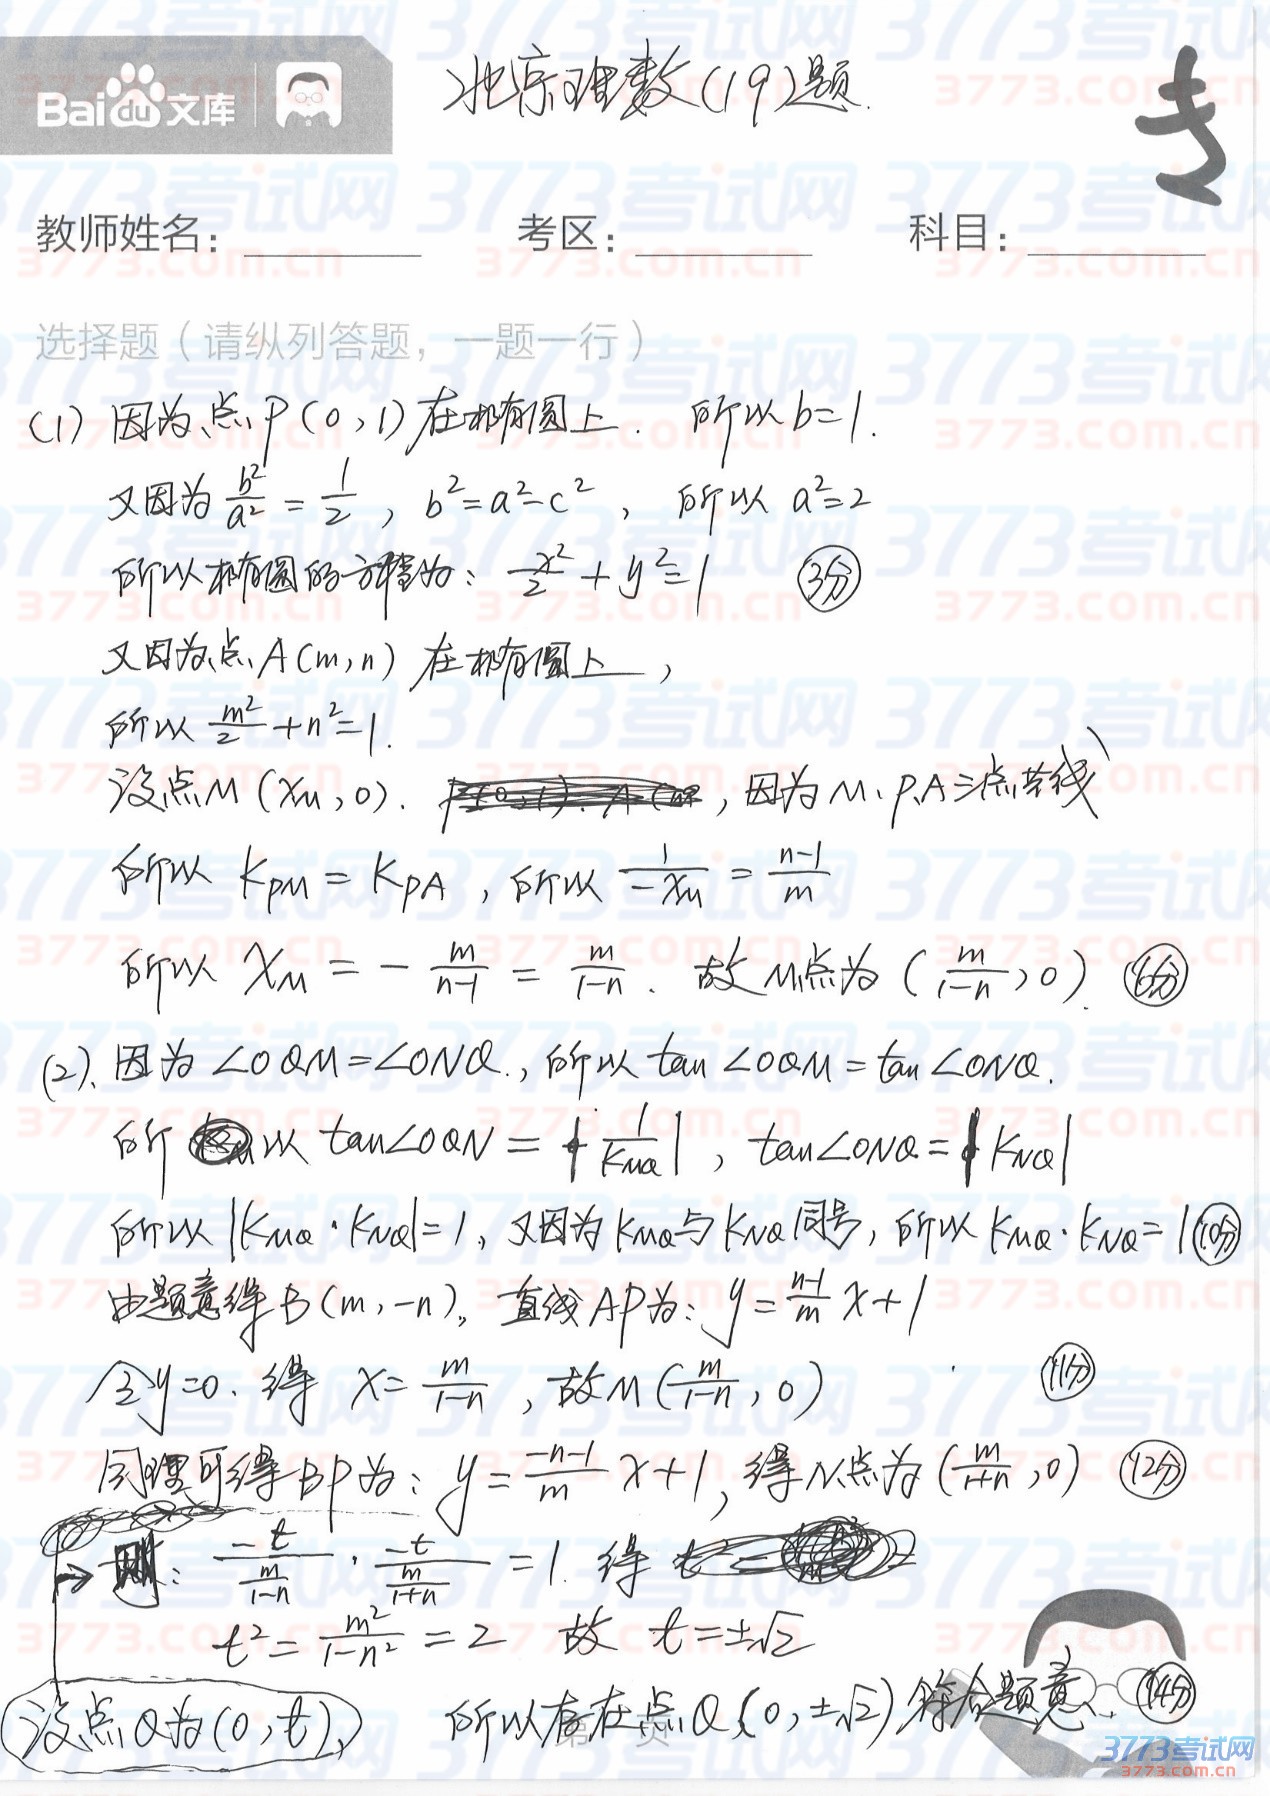 北京理数(19)题.
Baidu文库
教师姓名: 考区: 科目:
选择题（请纵列答题，一题一行）
(1) 因为点P(0,1)在椭圆上. 所以b=1.
又因为 b²/a² = 1/2, b²=a²-c², 所以 a²=2
所以椭圆的方程为: x²/2 + y²=1 (3分)
又因为点A(m,n) 在椭圆上,
所以 m²/2 + n²=1.
设点M(x_M,0). , 因为M、P、A三点共线
所以 K_PM = K_PA, 所以 1/-x_M = n-1/m
所以 x_M = - m/n-1 = m/1-n. 故M点为 (m/1-n,0). (6分)
(2)、因为∠OQM=∠ONQ., 所以 tan∠OQM=tan∠ONQ.
所以 tan∠OQN = |1/K_MQ|, tan∠ONQ=|K_NQ|
所以 |K_MQ·K_NQ|=1, 又因为K_MQ与K_NQ同号, 所以K_MQ·K_NQ=1 (10分)
由题意得B(m,-n)。直线AP为: y = n-1/m x+1
令y=0. 得 x= m/1-n, 故M(m/1-n,0) (11分)
同理可得BP为: y= -n-1/m x+1, 得N点为(m/1+n,0) (12分)
→则: -t/(m/1-n) · -t/(m/1+n) =1. 得
t²= m²/1-n² =2 故 t=±√2
设点Q为(0,t), 所以存在点Q(0,±√2)符合题意. (14分)
第 页
3773考试网
3773.com.cn